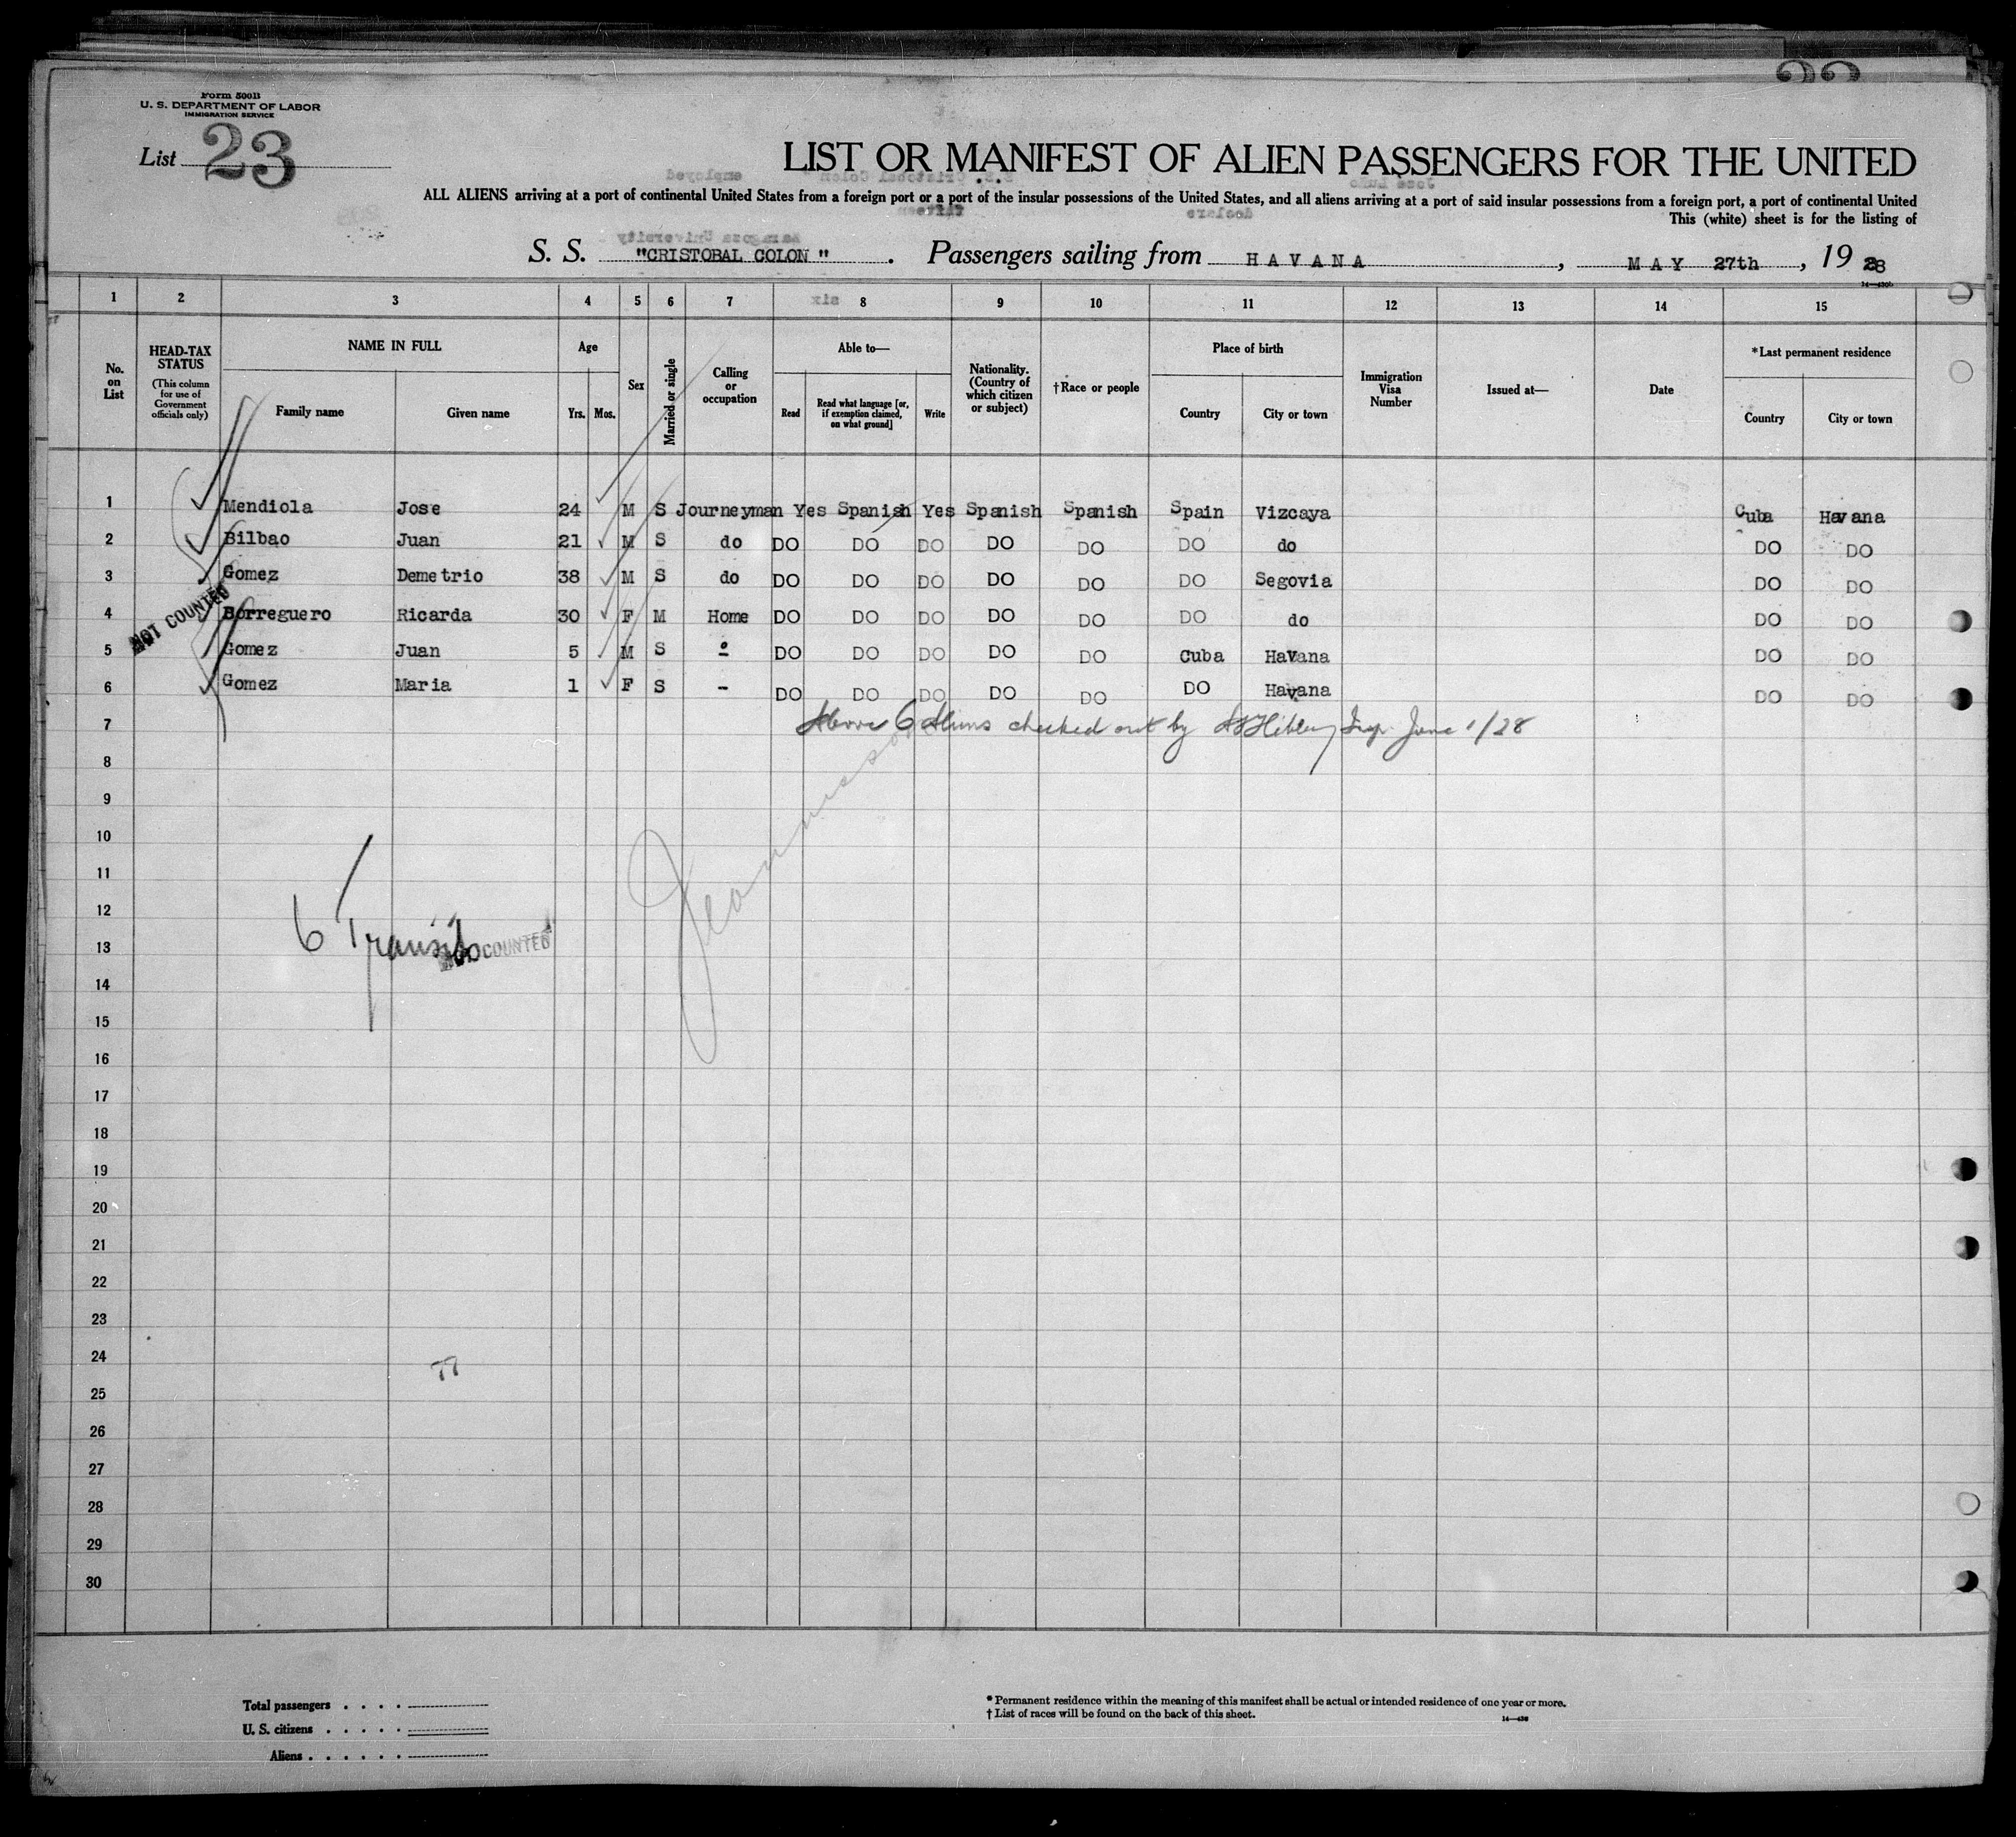 Form 500B
U. S. DEPARTMENT OF LABOR
IMMIGRATION SERVICE
List 23
LIST OR MANIFEST OF ALIEN PASSENGERS FOR THE UNITED
ALL ALIENS arriving at a port of continental United States from a foreign port or a port of the insular possessions of the United States, and all aliens arriving at a port of said insular possessions from a foreign port, a port of continental United
This (white) sheet is for the listing of
S. S. "CRISTOBAL COLON". Passengers sailing from HAVANA, MAY 27th, 1928
1 2 3 4 5 6 7 8 9 10 11 12 13 14 15
No. on List
HEAD-TAX STATUS
(This column for use of Government officials only)
NAME IN FULL
Family name Given name
Age
Yrs. Mos.
Sex
Married or single
Calling or occupation
Able to—
Read
Read what language [or, if exemption claimed, on what ground]
Write
Nationality. (Country of which citizen or subject)
†Race or people
Place of birth
Country City or town
Immigration Visa Number
Issued at—
Date
*Last permanent residence
Country City or town
1 Mendiola Jose 24 M S Journeyman Yes Spanish Yes Spanish Spanish Spain Vizcaya Cuba Havana
2 Bilbao Juan 21 M S do DO DO DO DO DO DO do DO DO
3 Gomez Demetrio 38 M S do DO DO DO DO DO DO Segovia DO DO
4 Borreguero Ricarda 30 F M Home DO DO DO DO DO DO do DO DO
NOT COUNTED
5 Gomez Juan 5 M S DO DO DO DO DO Cuba Havana DO DO
6 Gomez Maria 1 F S - DO DO DO DO DO DO Havana DO DO
7 Above 6 Aliens checked out by Insp. June 1/28
8
9
10
11
12
13
6 Transits
COUNTED
14
15
16
17
18
19
20
21
22
23
24
77
25
26
27
28
29
30
Total passengers . . . .
U. S. citizens . . . . .
Aliens . . . . . .
* Permanent residence within the meaning of this manifest shall be actual or intended residence of one year or more.
† List of races will be found on the back of this sheet.